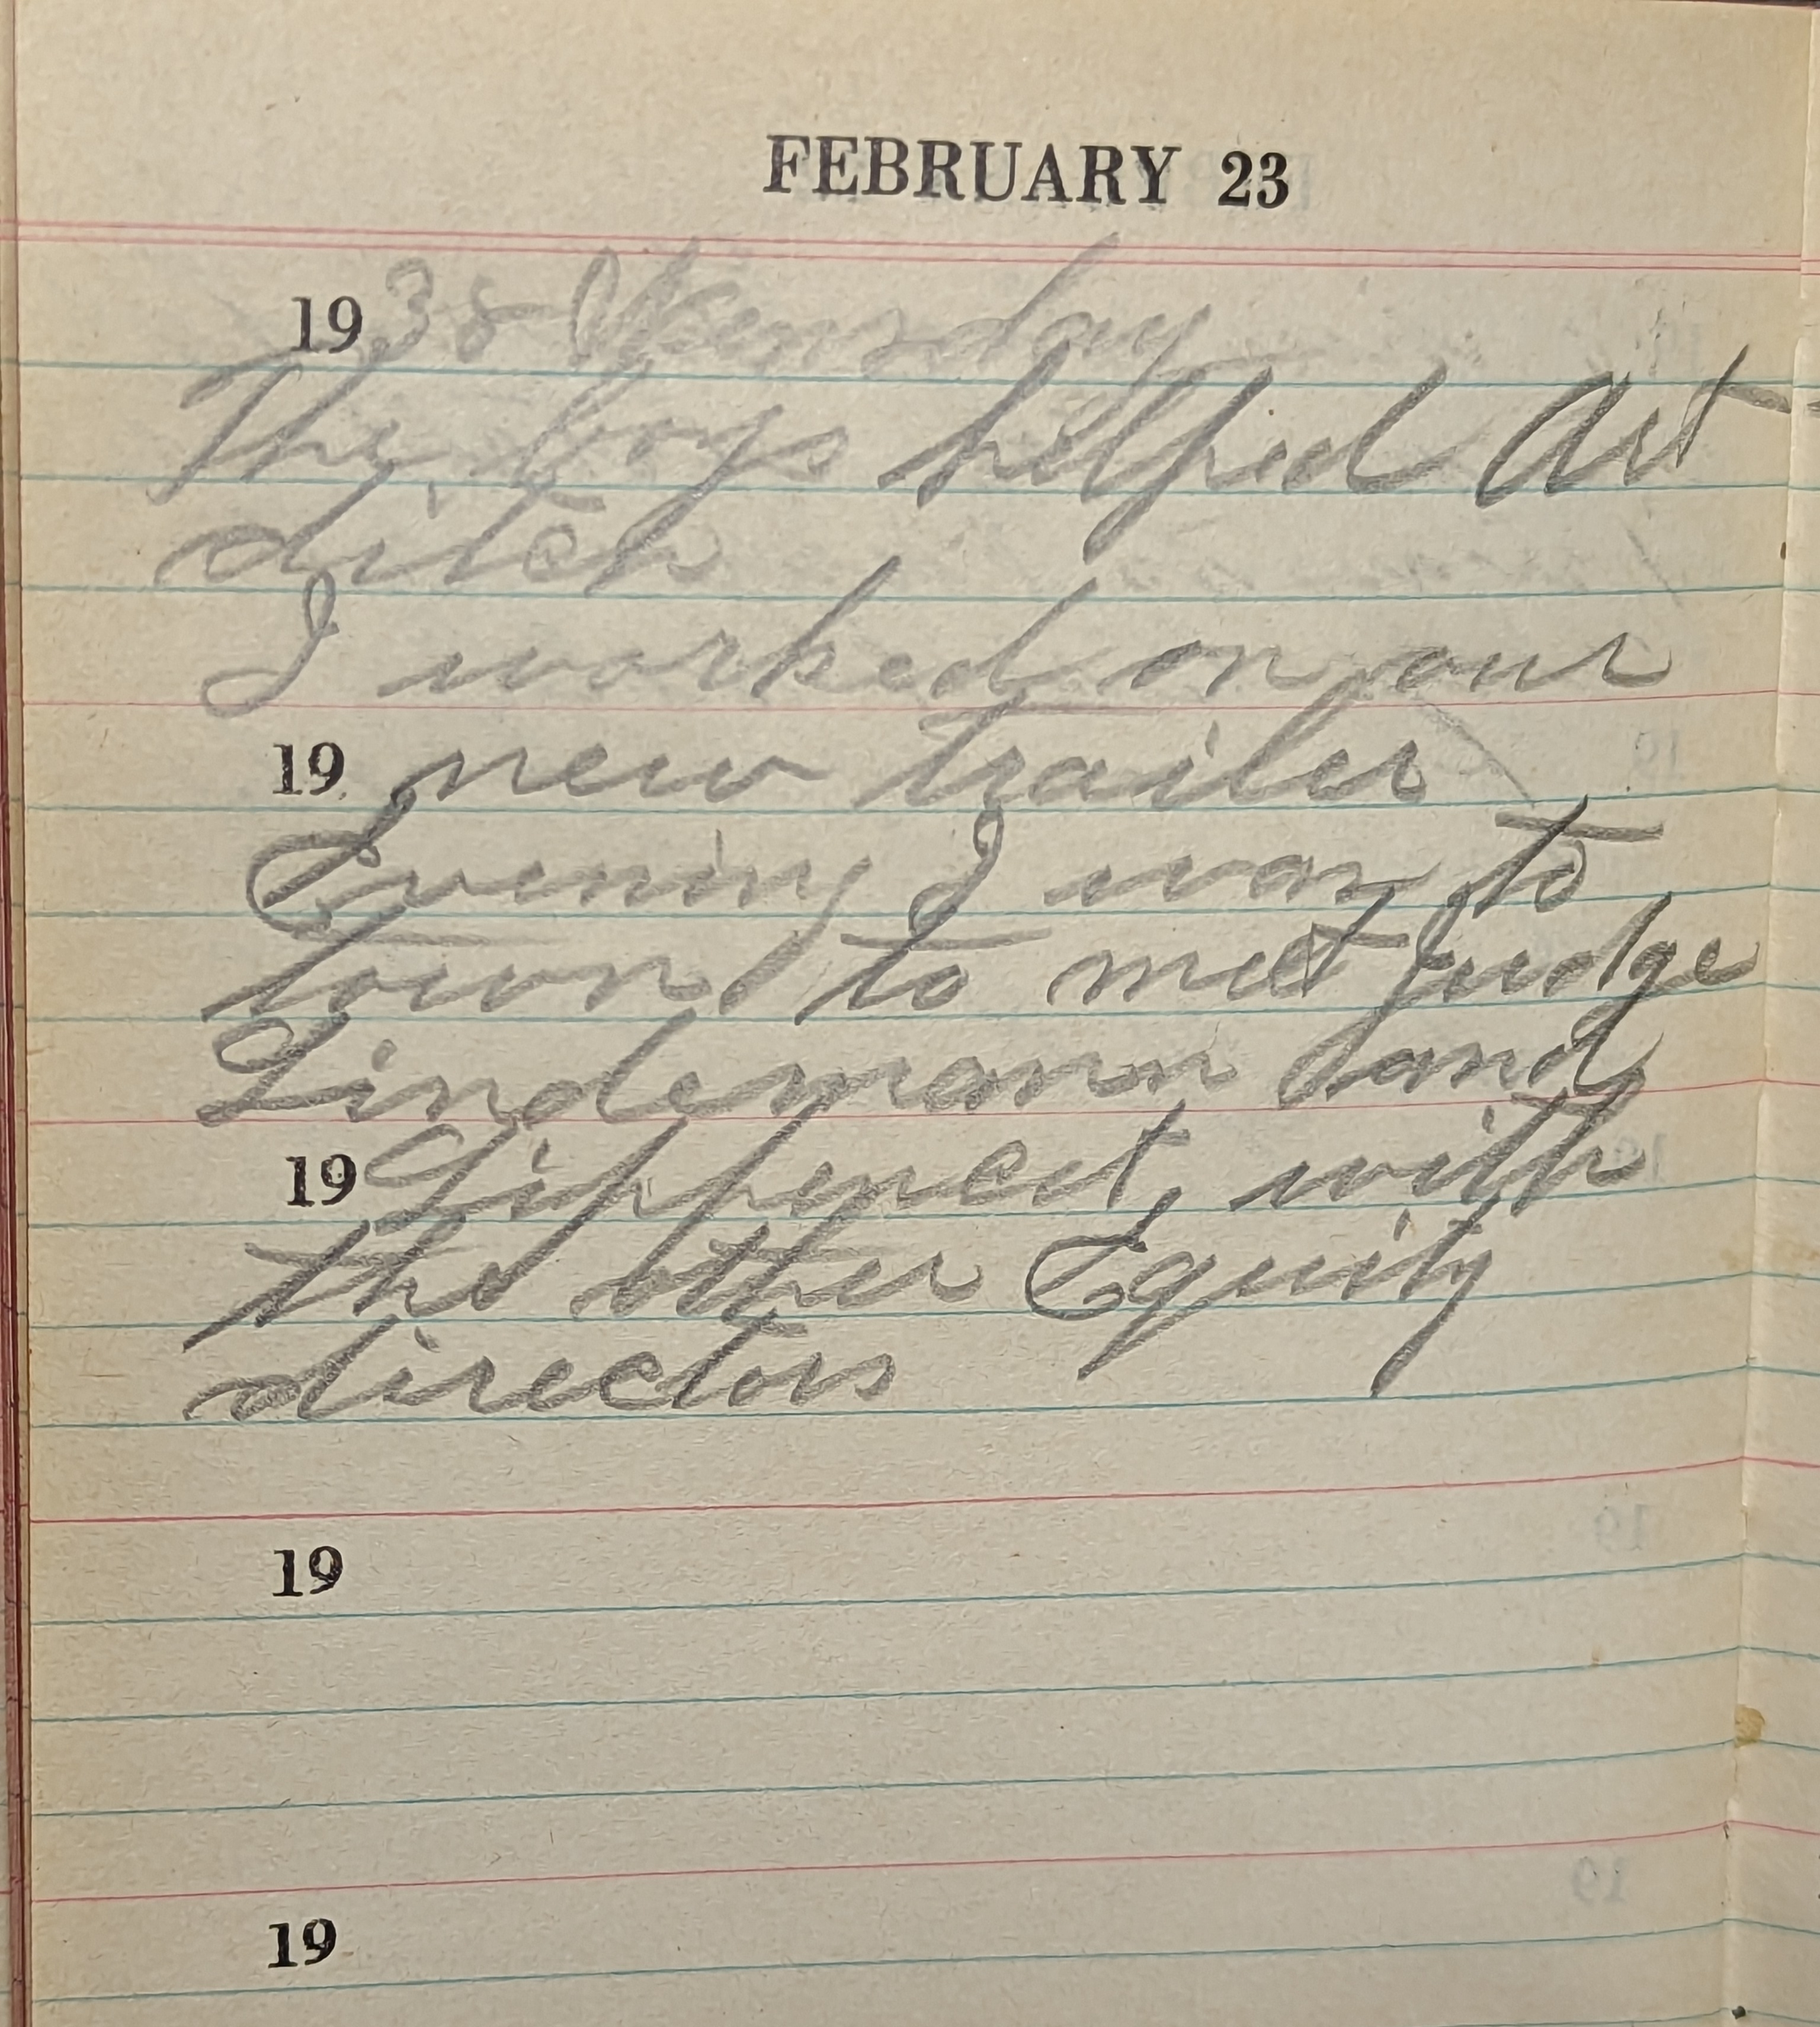 FEBRUARY 23
1938 Wensday
The boys helped Art
ditch
I worked on our
19 new trailer
Evening I was to
town to met Judge
Lindemann and
19 Lippert, with
the other Equity
directors
19
19